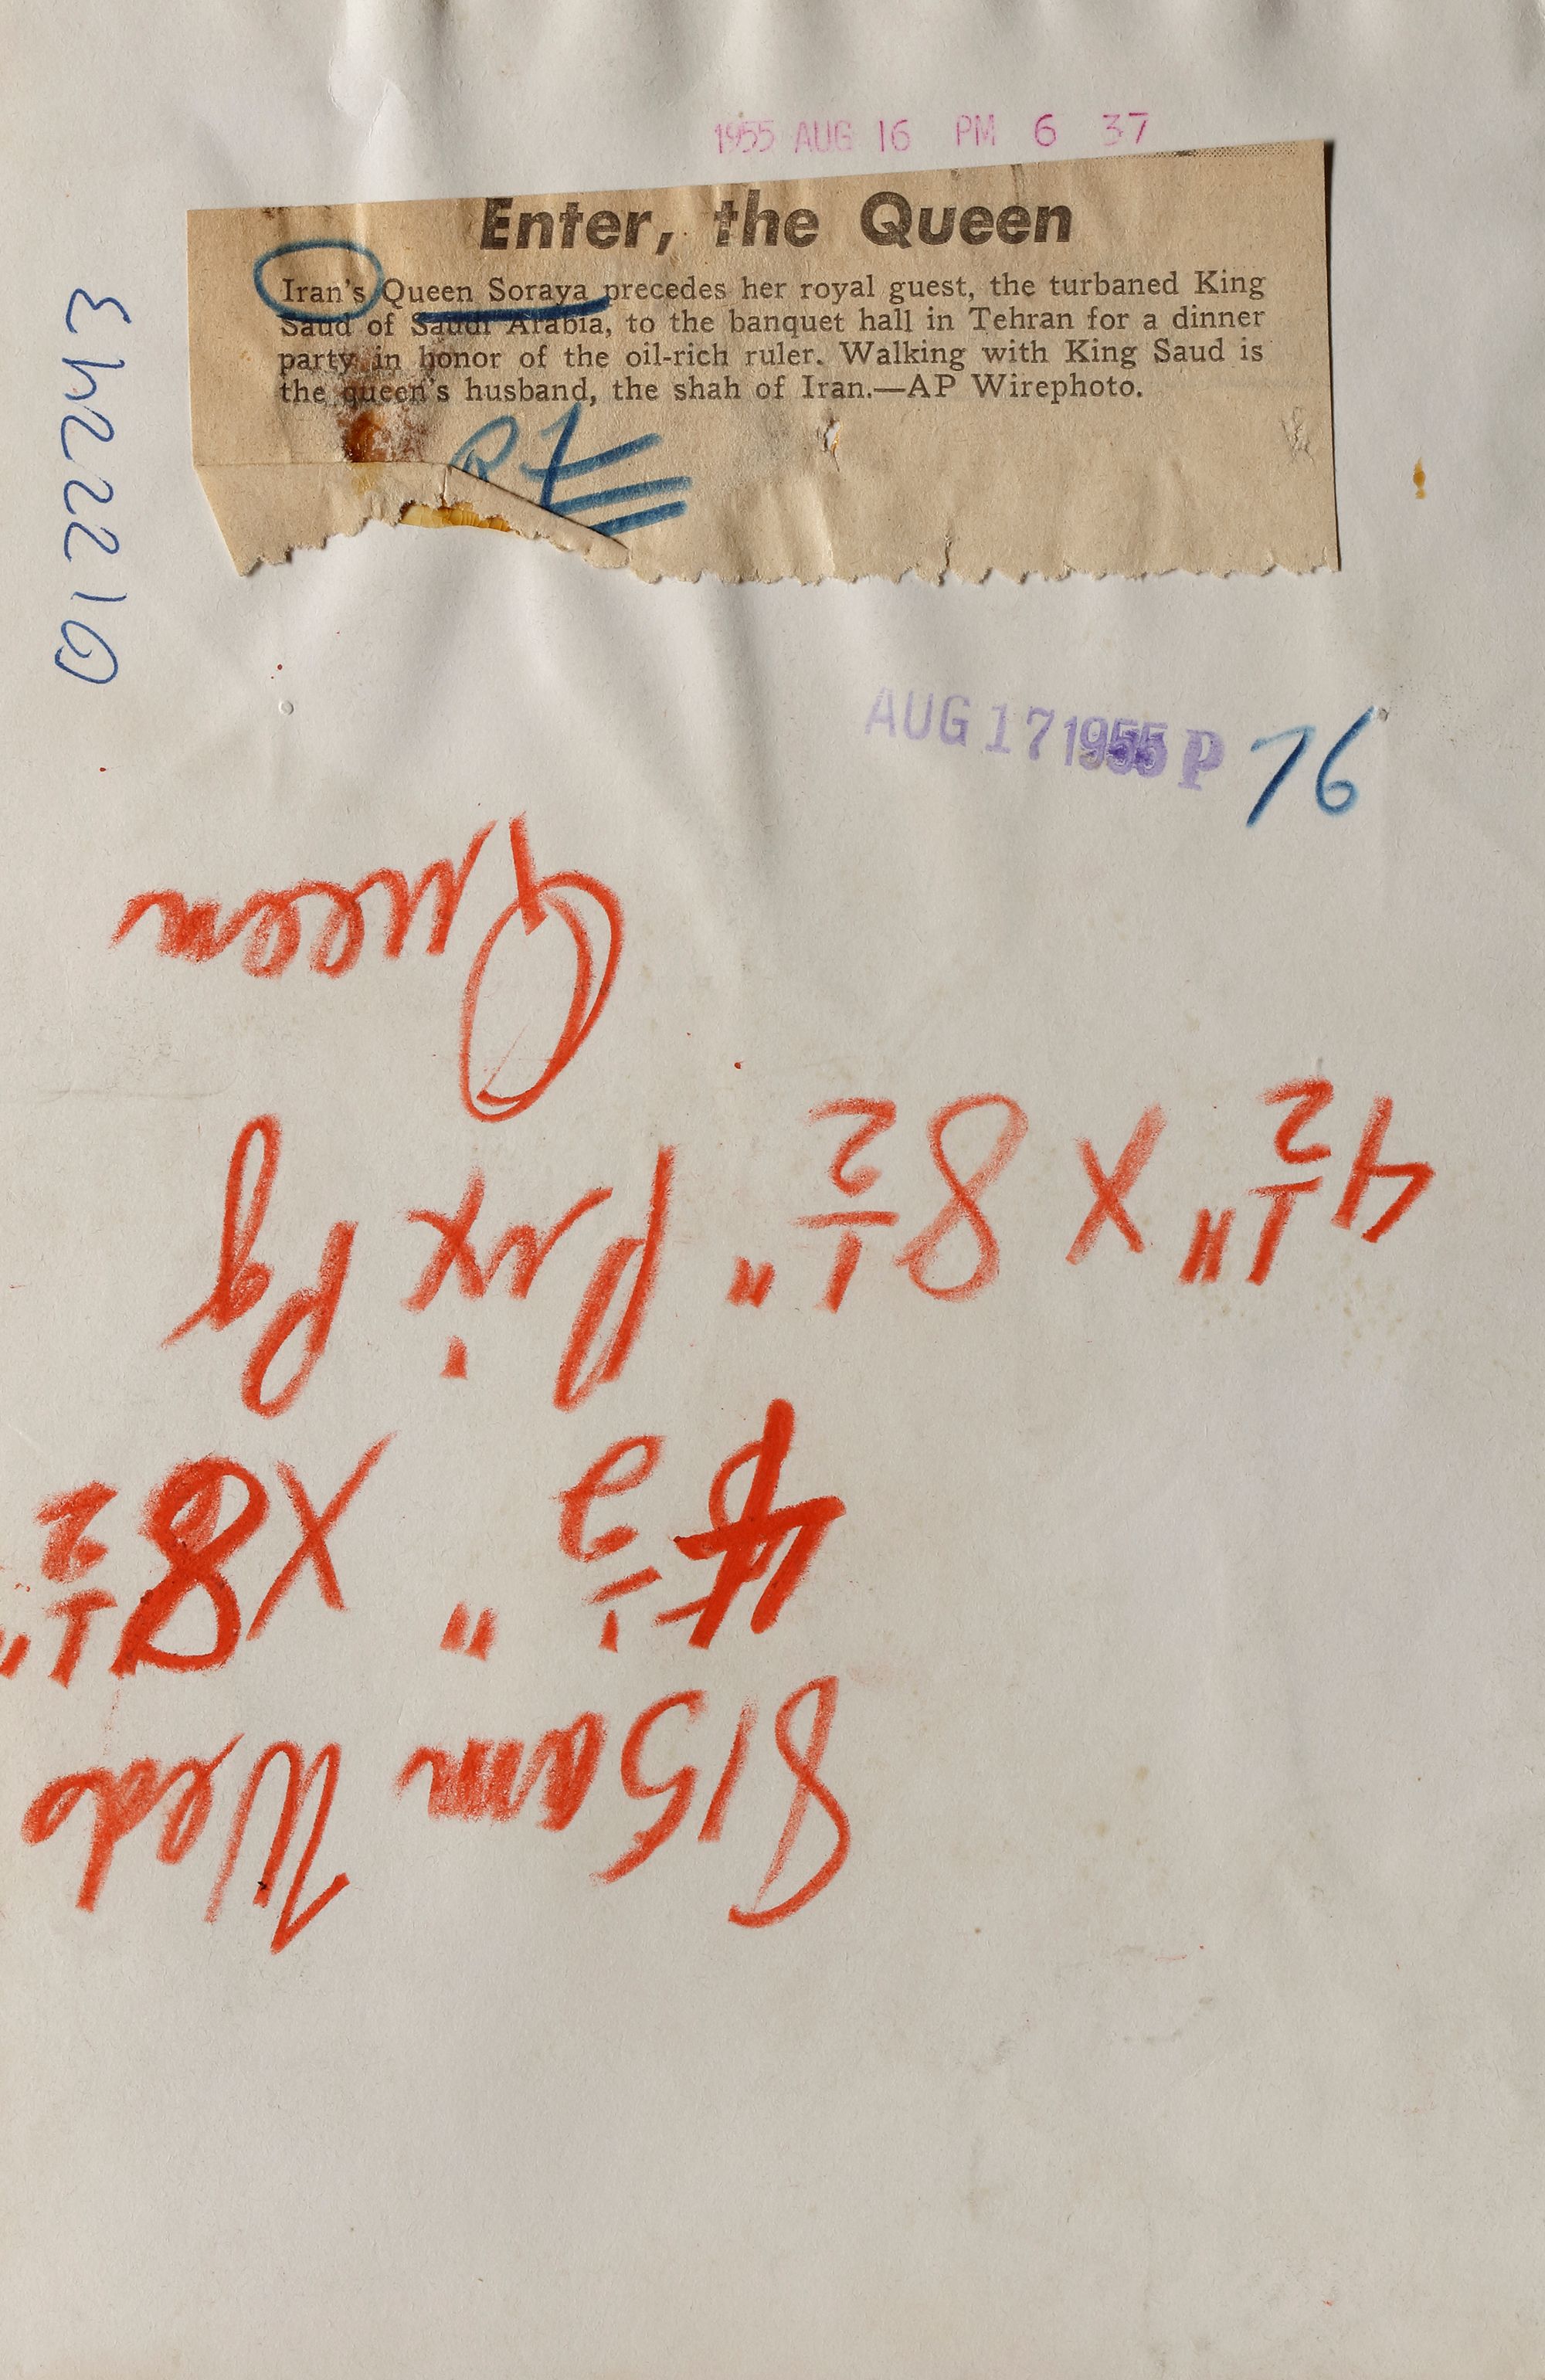 1955 AUG 16 PM 6 37
Enter, the Queen
Iran's Queen Soraya precedes her royal guest, the turbaned King
Saud of Saudi Arabia, to the banquet hall in Tehran for a dinner
party in honor of the oil-rich ruler. Walking with King Saud is
the queen's husband, the shah of Iran.—AP Wirephoto.
AUG 17 1955 P 76
815am Wed
4 1/2" X 8 1/2"
4 1/2" X 8 1/2" Pix Pg
Queen